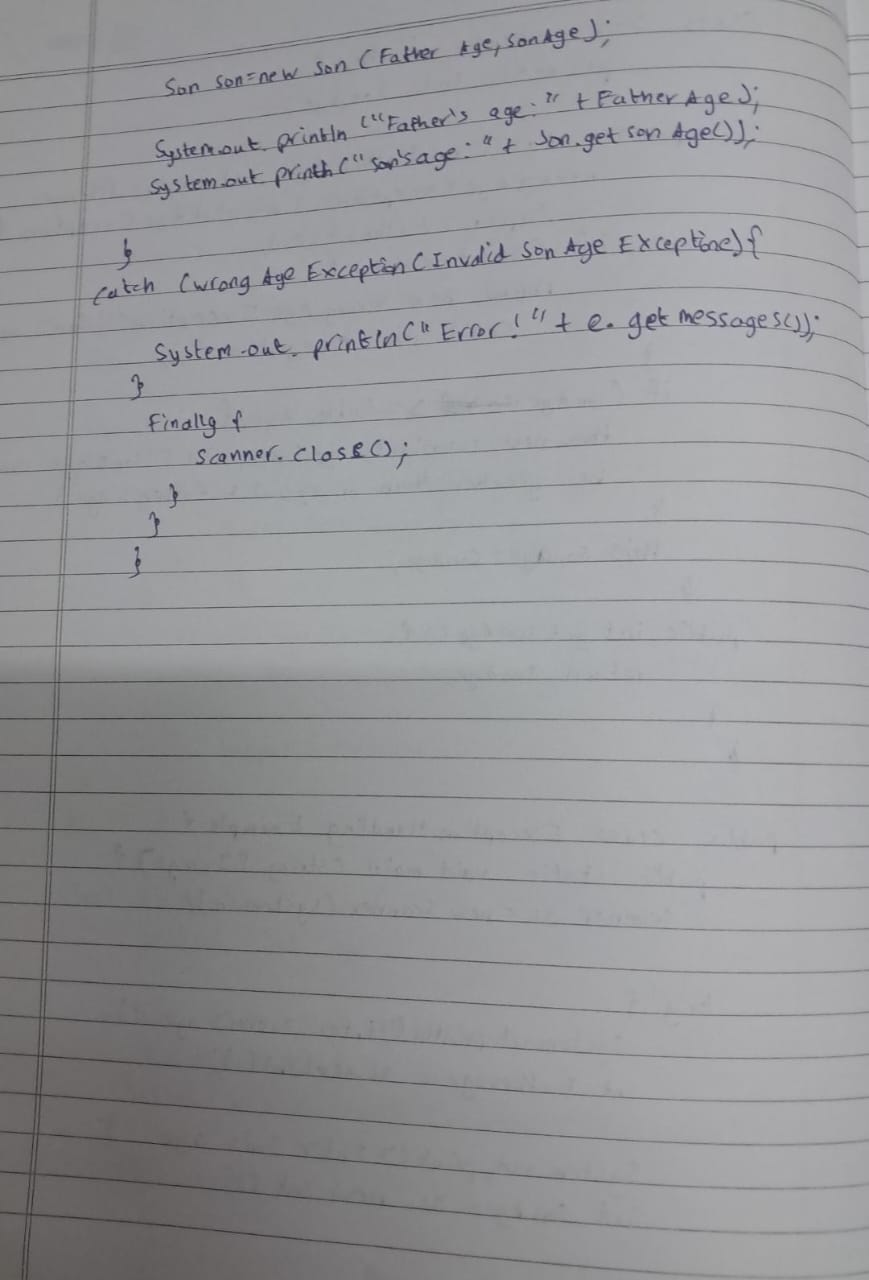 Son son=new son (Father Age, sonAge);
System.out. println ("Father's age:" + Father Age);
System.out println (" son's age: " + Son. get son Age());
}
catch (wrong Age Exception (Invalid Son Age Exceptione) {
System.out. println (" Error! " + e. get messages());
}
Finally {
Scanner. close();
}
}
}